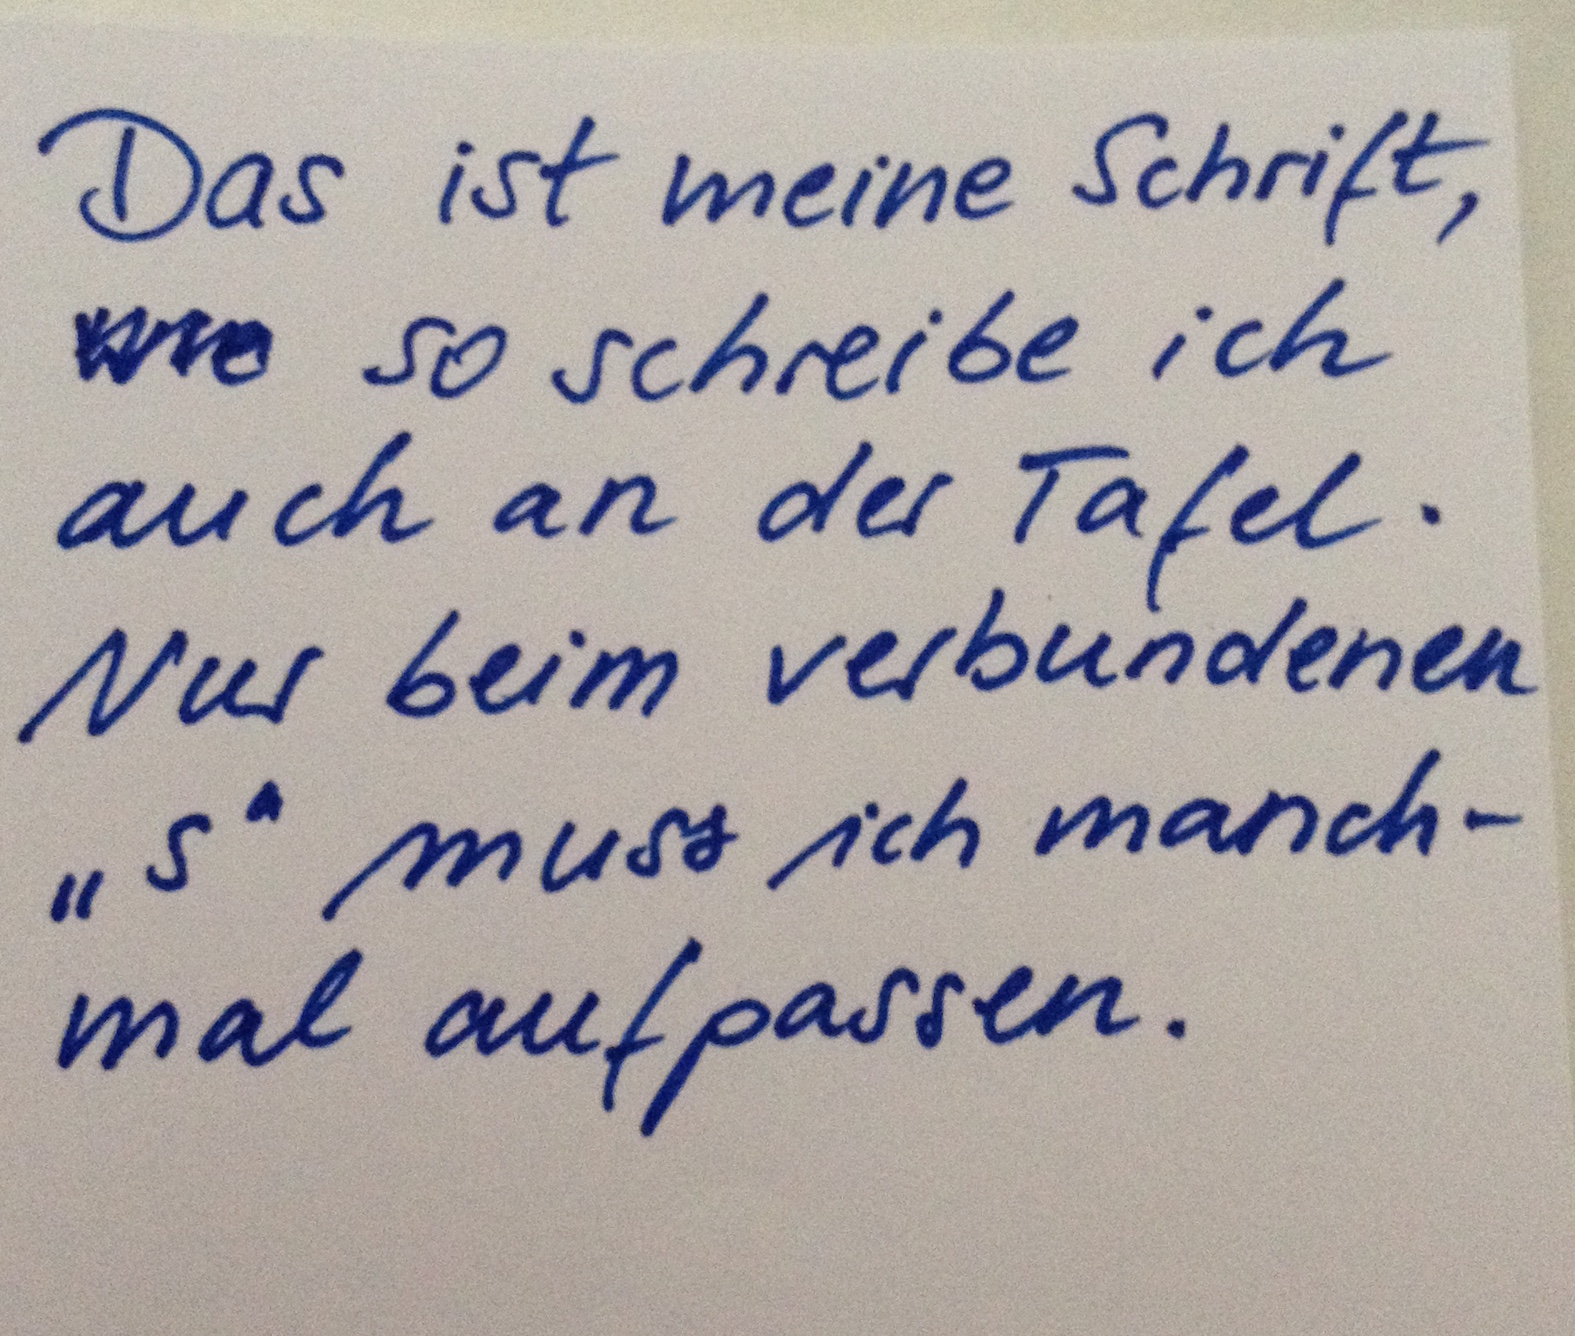 Das ist meine Schrift,
so schreibe ich
auch an der Tafel.
Nur beim verbundenen
„s“ muss ich manch-
mal aufpassen.